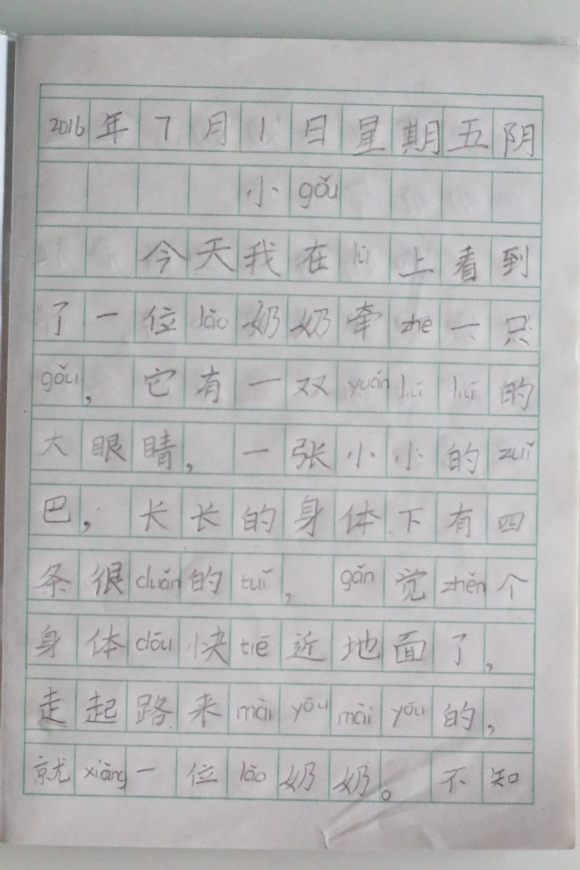 2016年7月1日星期五阴
小gǒu
今天我在lù上看到
了一位lǎo奶奶牵zhe一只
gǒu，它有一双yuán liū liū的
大眼睛，一张小小的zuǐ
巴，长长的身体下有四
条很duǎn的tuǐ，gǎn觉zhěn个
身体dōu快tiē近地面了，
走起路来mài yōu mài yōu的，
就xiàng一位lǎo奶奶。不知